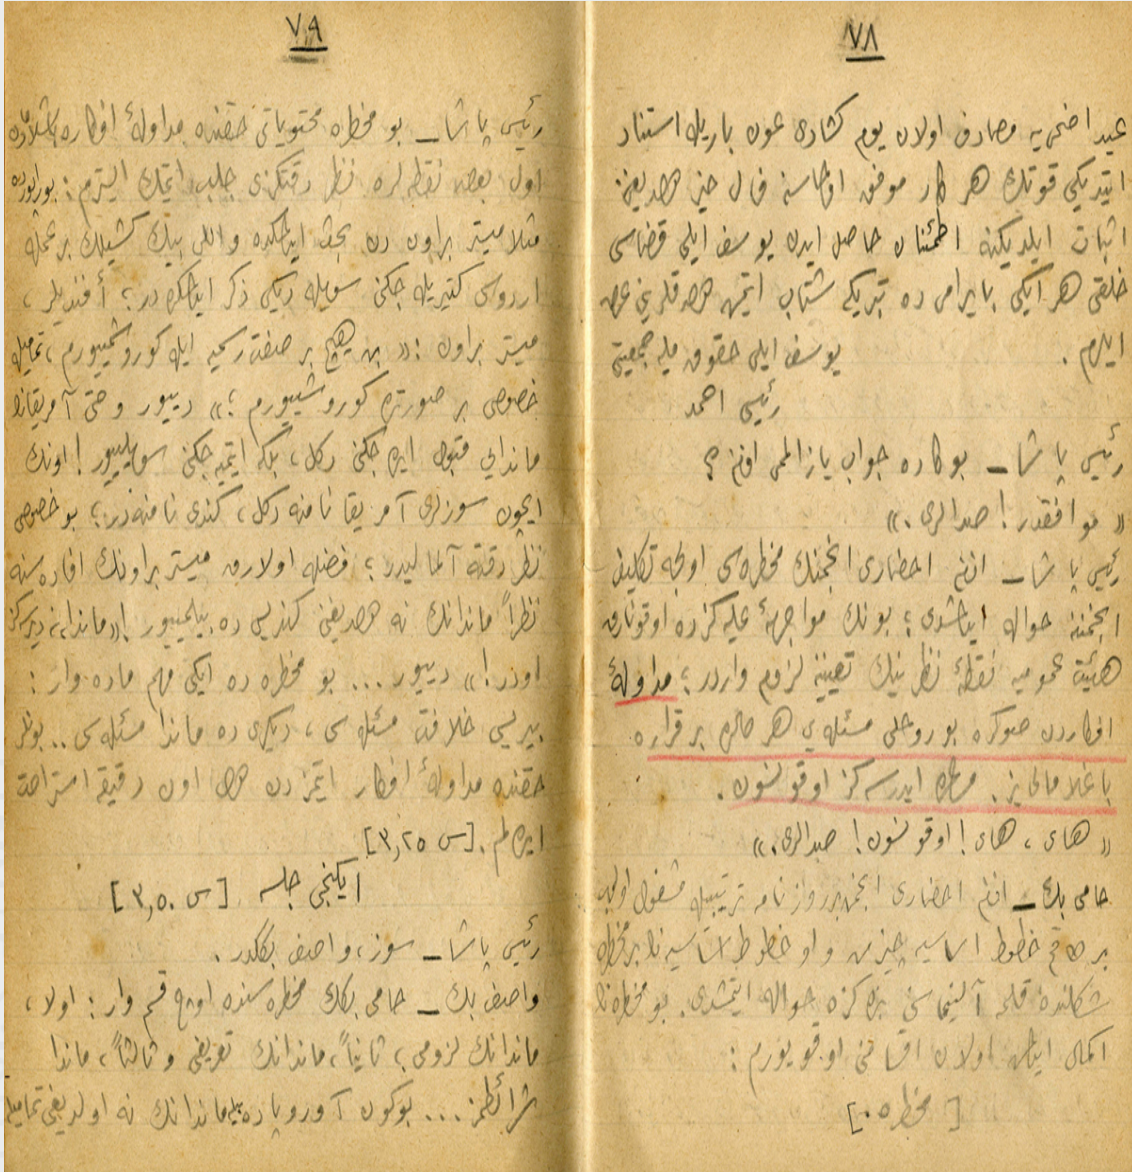 ٧٨
عيد اضحى يه مصادف اولان يوم كشادى عون باريله استناد
ايتديكى قوتك هر كار موفق اولماسنه فال خير
اثبات ايلديكنه اطمئنان حاصل ايدن يوسف ايلى قضاسى
خلقى هر ايكى بايرامى ده تبريكه شتاب ايتمش عرض
ايلرم . يوسف ايلى حقوق مليه جمعيتى
رئيسى احمد
رئيس پاشا ــ بوكا ده جواب يازالم مى افندم ؟
« موافقدر ! صدالرى . »
رئيس پاشا ــ افندم احضارى انجمنك مخطره سى اولجه تكليف
انجمننه حواله ايدلمشدى ؛ بونك مواجهۀ عليه كزده اوقونارق
هيئت عموميه نقطۀ نظرينك تعيينه لزوم واردر ؛ مداولۀ
افكاردن صوكره بو روحلى مسئله يى هر حالده بر قراره
باغلامالى يز . مساعده ايدرسه كز اوقونسون .
« هاى ، هاى ! اوقونسون ! صدالرى . »
حامى بك ــ افندم احضارى انجمن روزنامه ترتيبيله مشغول اولوب
بر طاقم خطوط اساسيه چيزمش و او خطوط اساسيه نك بر مخطره
شكلنده قلمه آلينماسنى بنده كزه حواله ايتمشدى . بو مخطره نك
اكمال ايدلمش اولان اقسامنى اوقويورم :
[ مخطره . ]
٧٩
رئيس پاشا ــ بو مخطره محتوياتى حقنده مداولۀ افكاره باشلامادن
اول بعض نقطه لره نظر دقتكزى جلب ايتمك ايسترم : بوراپورده
مثلا ميستر براون دن بحث ايدلمكده و اللى بيك كشيلك بر عمله
اردوسى كتيريله جكنى سويله ديكى ذكر ايدلمكده در ؛ افنديلر ،
ميستر براون : « بن هيچ بر صفت رسميه ايله كوروشميورم ، تماميله
خصوصى بر صورتده كوروشييورم ؛ » دييور و حتى آمريقانك
ماندايى قبول ايده جكنى دكل ، بلكه ايتميه جكنى سويلييور ! اونك
ايچون سوزلرى آمريقا نامنه دكل ، كندى نامنه در ؛ بو خصوصى
نظر دقته آلماليدر ؛ فضله اولارق ميستر براونك افاده سنه
نظراً ماندانك نه اولديغنى كنديسى ده بيلمييور ! « ماندا ، نه ديرسه كز
اودر ! » دييور ... بو مخطره ده ايكى مهم ماده وار :
بيريسى خلافت مسئله سى ، ديكرى ده ماندا مسئله سى .. بونلر
حقنده مداولۀ افكار ايتمزدن اول اون دقيقه استراحت
ايده لم . [ س ٣,٢٥ ]
ايكنجى جلسه [ س ٣,٥٠ ]
رئيس پاشا ــ سوز ، واصف بككدر .
واصف بك ــ حامى بكك مخطره سنده اوچ قسم وار : اولا ،
ماندانك لزومى ؛ ثانياً ، ماندانك تعريفى و ثالثاً ، ماندا
شرائطمز ... بوكون آوروپاده بيله ماندانك نه اولديغى تماميله